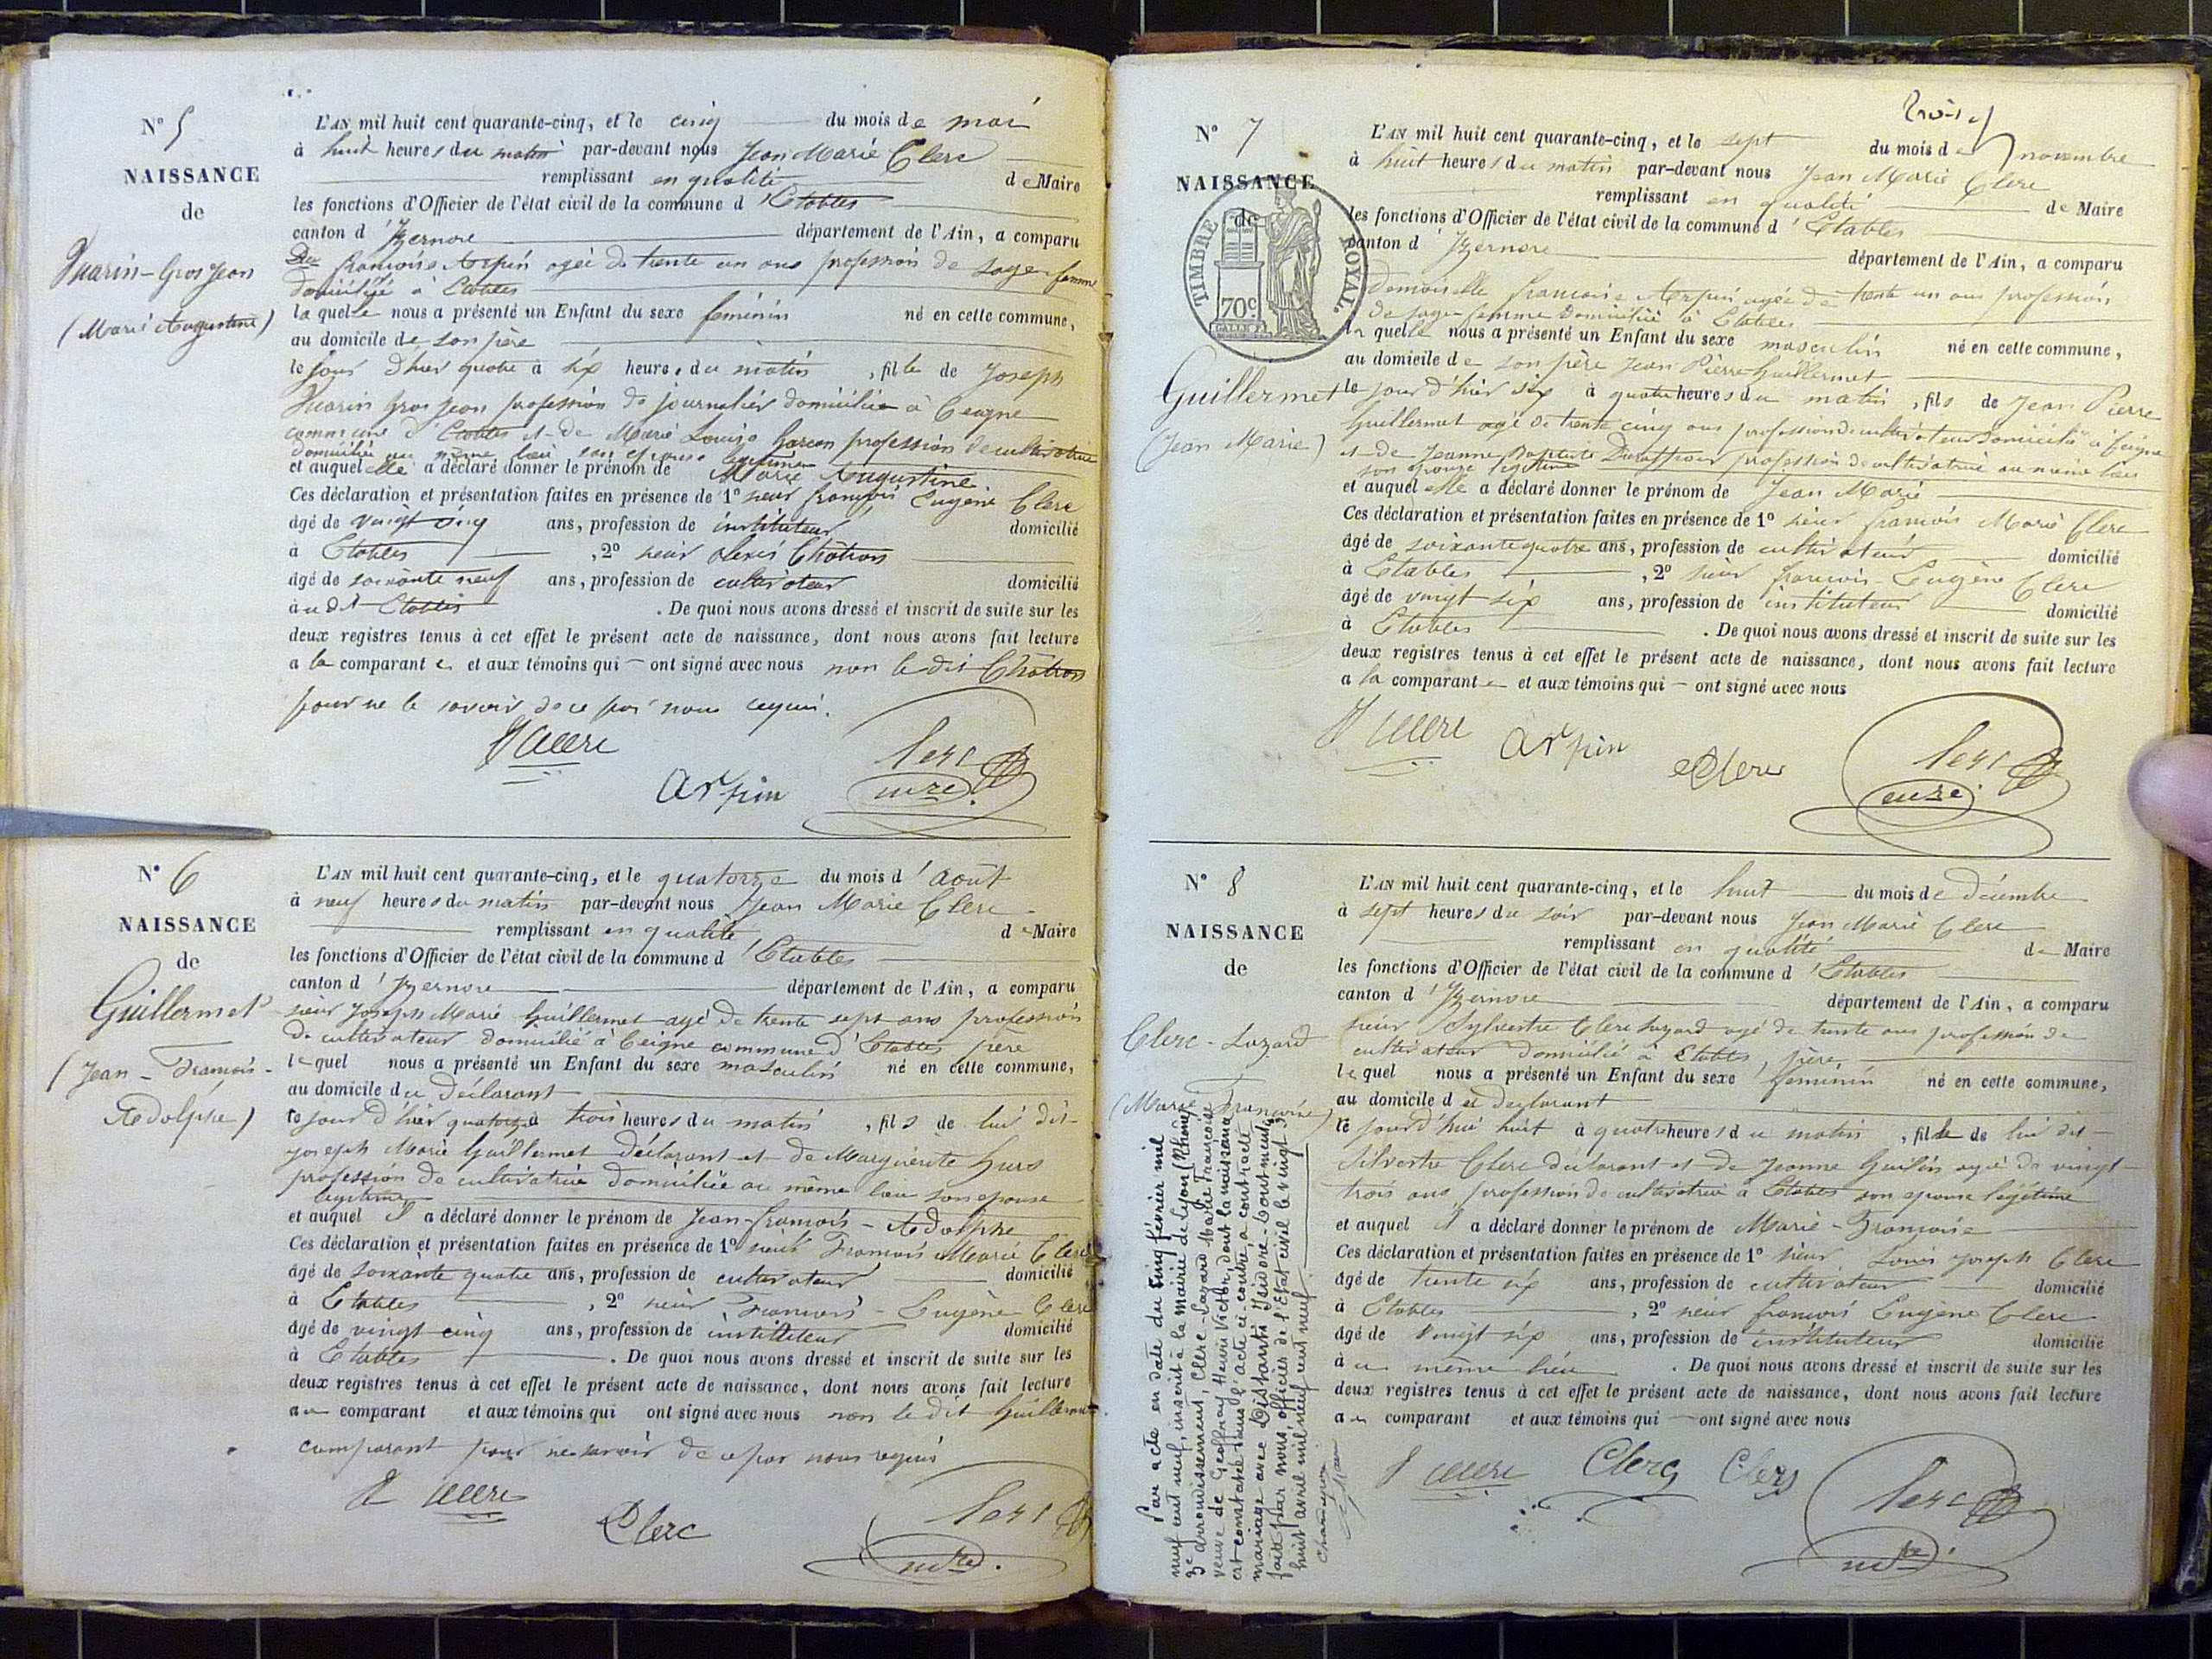 N° 5
NAISSANCE
de
Guarin-Gros Jean
(Marie Augustine)
L'AN mil huit cent quarante-cinq, et le cinq du mois de mai
à huit heures du matin par-devant nous Jean Marie Clerc
remplissant en qualité de Maire
les fonctions d'Officier de l'état civil de la commune d'Etables
canton d'Izernore département de l'Ain, a comparu
françoise Arpin agée de trente un ans profession de sage-femme
domiciliée à Etables
la quelle nous a présenté un Enfant du sexe feminin né en cette commune,
au domicile de son père
le jour d'hier quatre à six heures du matin, fille de Joseph
Guarin Gros Jean profession de journalier domicilié à Ceigne
commune d'Etables et de Marie Louise garcon profession de cultivatrice
domiciliée au même lieu son epouse legitime
et auquel elle a déclaré donner le prénom de Marie Augustine
Ces déclaration et présentation faites en présence de 1° sieur françois Eugène Clerc
âgé de vaingt cinq ans, profession de instituteur domicilié
à Etables, 2° sieur Alexis Châtron
âgé de soixante neuf ans, profession de cultivateur domicilié
au dt Etables. De quoi nous avons dressé et inscrit de suite sur les
deux registres tenus à cet effet le présent acte de naissance, dont nous avons fait lecture
a la comparante et aux témoins qui ont signé avec nous non le dit Châtron
pour ne le savoir de ce par nous requis.
Clerc
arpin
Clerc
mre
N° 6
NAISSANCE
de
Guillermet
(Jean-François-
Adolphe)
L'AN mil huit cent quarante-cinq, et le quatorze du mois d'août
à neuf heures du matin par-devant nous Jean Marie Clerc
remplissant en qualité de Maire
les fonctions d'Officier de l'état civil de la commune d'Etables
canton d'Izernore département de l'Ain, a comparu
sieur Joseph Marie Guillermet agé de trente sept ans profession
de cultivateur domicilié à Ceigne commune d'Etables père
lequel nous a présenté un Enfant du sexe masculin né en cette commune,
au domicile du déclarant
le jour d'hier quatorze à trois heures du matin, fils de lui dit
joseph Marie Guillermet déclarant et de Marguerite Gurs
profession de cultivatrice domiciliée au même lieu son epouse
legitime
et auquel il a déclaré donner le prénom de Jean-françois-Adolphe
Ces déclaration et présentation faites en présence de 1° sieur François Marie Clerc
âgé de soixante quatre ans, profession de cultivateur domicilié
à Etables, 2° sieur François-Eugène Clerc
âgé de vingt cinq ans, profession de instituteur domicilié
à Etables. De quoi nous avons dressé et inscrit de suite sur les
deux registres tenus à cet effet le présent acte de naissance, dont nous avons fait lecture
au comparant et aux témoins qui ont signé avec nous non le dit Guillermet
comparant pour ne savoir de ce par nous requis
Clerc
Clerc
mre
N° 7
NAISSANCE
de
TIMBRE ROYAL.
70c
Guillermet
(Jean Marie)
L'AN mil huit cent quarante-cinq, et le sept du mois de novembre
à huit heures du matin par-devant nous Jean Marie Clerc
remplissant en qualité de Maire
les fonctions d'Officier de l'état civil de la commune d'Etables
canton d'Izernore département de l'Ain, a comparu
Demoiselle françoise Arpin agée de trente un ans profession
de sage-femme domiciliée à Etables
la quelle nous a présenté un Enfant du sexe masculin né en cette commune,
au domicile de son père Jean Pierre Guillermet
le jour d'hier six à quatre heures du matin, fils de Jean Pierre
Guillermet agé de trente cinq ans profession de cultivateur domicilié à Ceigne
et de Jeanne Baptiste profession de cultivatrice au même lieu
son epouse legitime
et auquel elle a déclaré donner le prénom de Jean Marie
Ces déclaration et présentation faites en présence de 1° sieur françois Marie Clerc
âgé de soixante quatre ans, profession de cultivateur domicilié
à Etables, 2° sieur françois-Eugène Clerc
âgé de vingt six ans, profession de instituteur domicilié
à Etables. De quoi nous avons dressé et inscrit de suite sur les
deux registres tenus à cet effet le présent acte de naissance, dont nous avons fait lecture
a la comparante et aux témoins qui ont signé avec nous
Clerc
arpin
Clerc
Clerc
N° 8
NAISSANCE
de
Clerc-Lazard
(Marie Françoise)
L'AN mil huit cent quarante-cinq, et le huit du mois de décembre
à sept heures du soir par-devant nous Jean Marie Clerc
remplissant en qualité de Maire
les fonctions d'Officier de l'état civil de la commune d'Etables
canton d'Izernore département de l'Ain, a comparu
sieur Sylvestre Clerc Lazard agé de trente ans profession de
cultivateur domicilié à Etables, père,
lequel nous a présenté un Enfant du sexe feminin né en cette commune,
au domicile du declarant
le jourd'hui huit à quatre heures du matin, fille de lui dit
Silvestre Clerc déclarant et de Jeanne Guilin agée de vingt-
trois ans profession de cultivatrice à Etables son epouse legitime
et auquel il a déclaré donner le prénom de Marie-Françoise
Ces déclaration et présentation faites en présence de 1° sieur Louis joseph Clerc
âgé de trente six ans, profession de cultivateur domicilié
à Etables, 2° sieur françois Eugène Clerc
âgé de vingt six ans, profession de instituteur domicilié
au même lieu. De quoi nous avons dressé et inscrit de suite sur les
deux registres tenus à cet effet le présent acte de naissance, dont nous avons fait lecture
au comparant et aux témoins qui ont signé avec nous
Clerc
Clerc
Clerc
Clerc
mre
Par acte en date du cinq février mil
neuf cent neuf, inscrit à la mairie de Lyon (Rhône)
3e arrondissement, Clerc-Lazard Marie Françoise
veuve de Geoffray Henri Victor, dont la naissance
est constatée dans l'acte ci-contre, a contracté
mariage avec Isidore.- Dont mention
faite par nous, officier de l'Etat civil le vingt
huit avril mil neuf cent neuf.